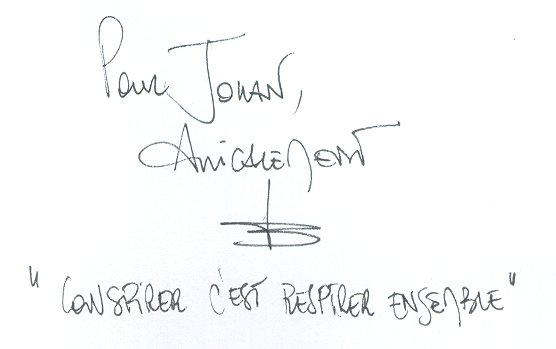 Pour JOHAN,
AMICALEMENT
"CONSPIRER C'EST RESPIRER ENSEMBLE"